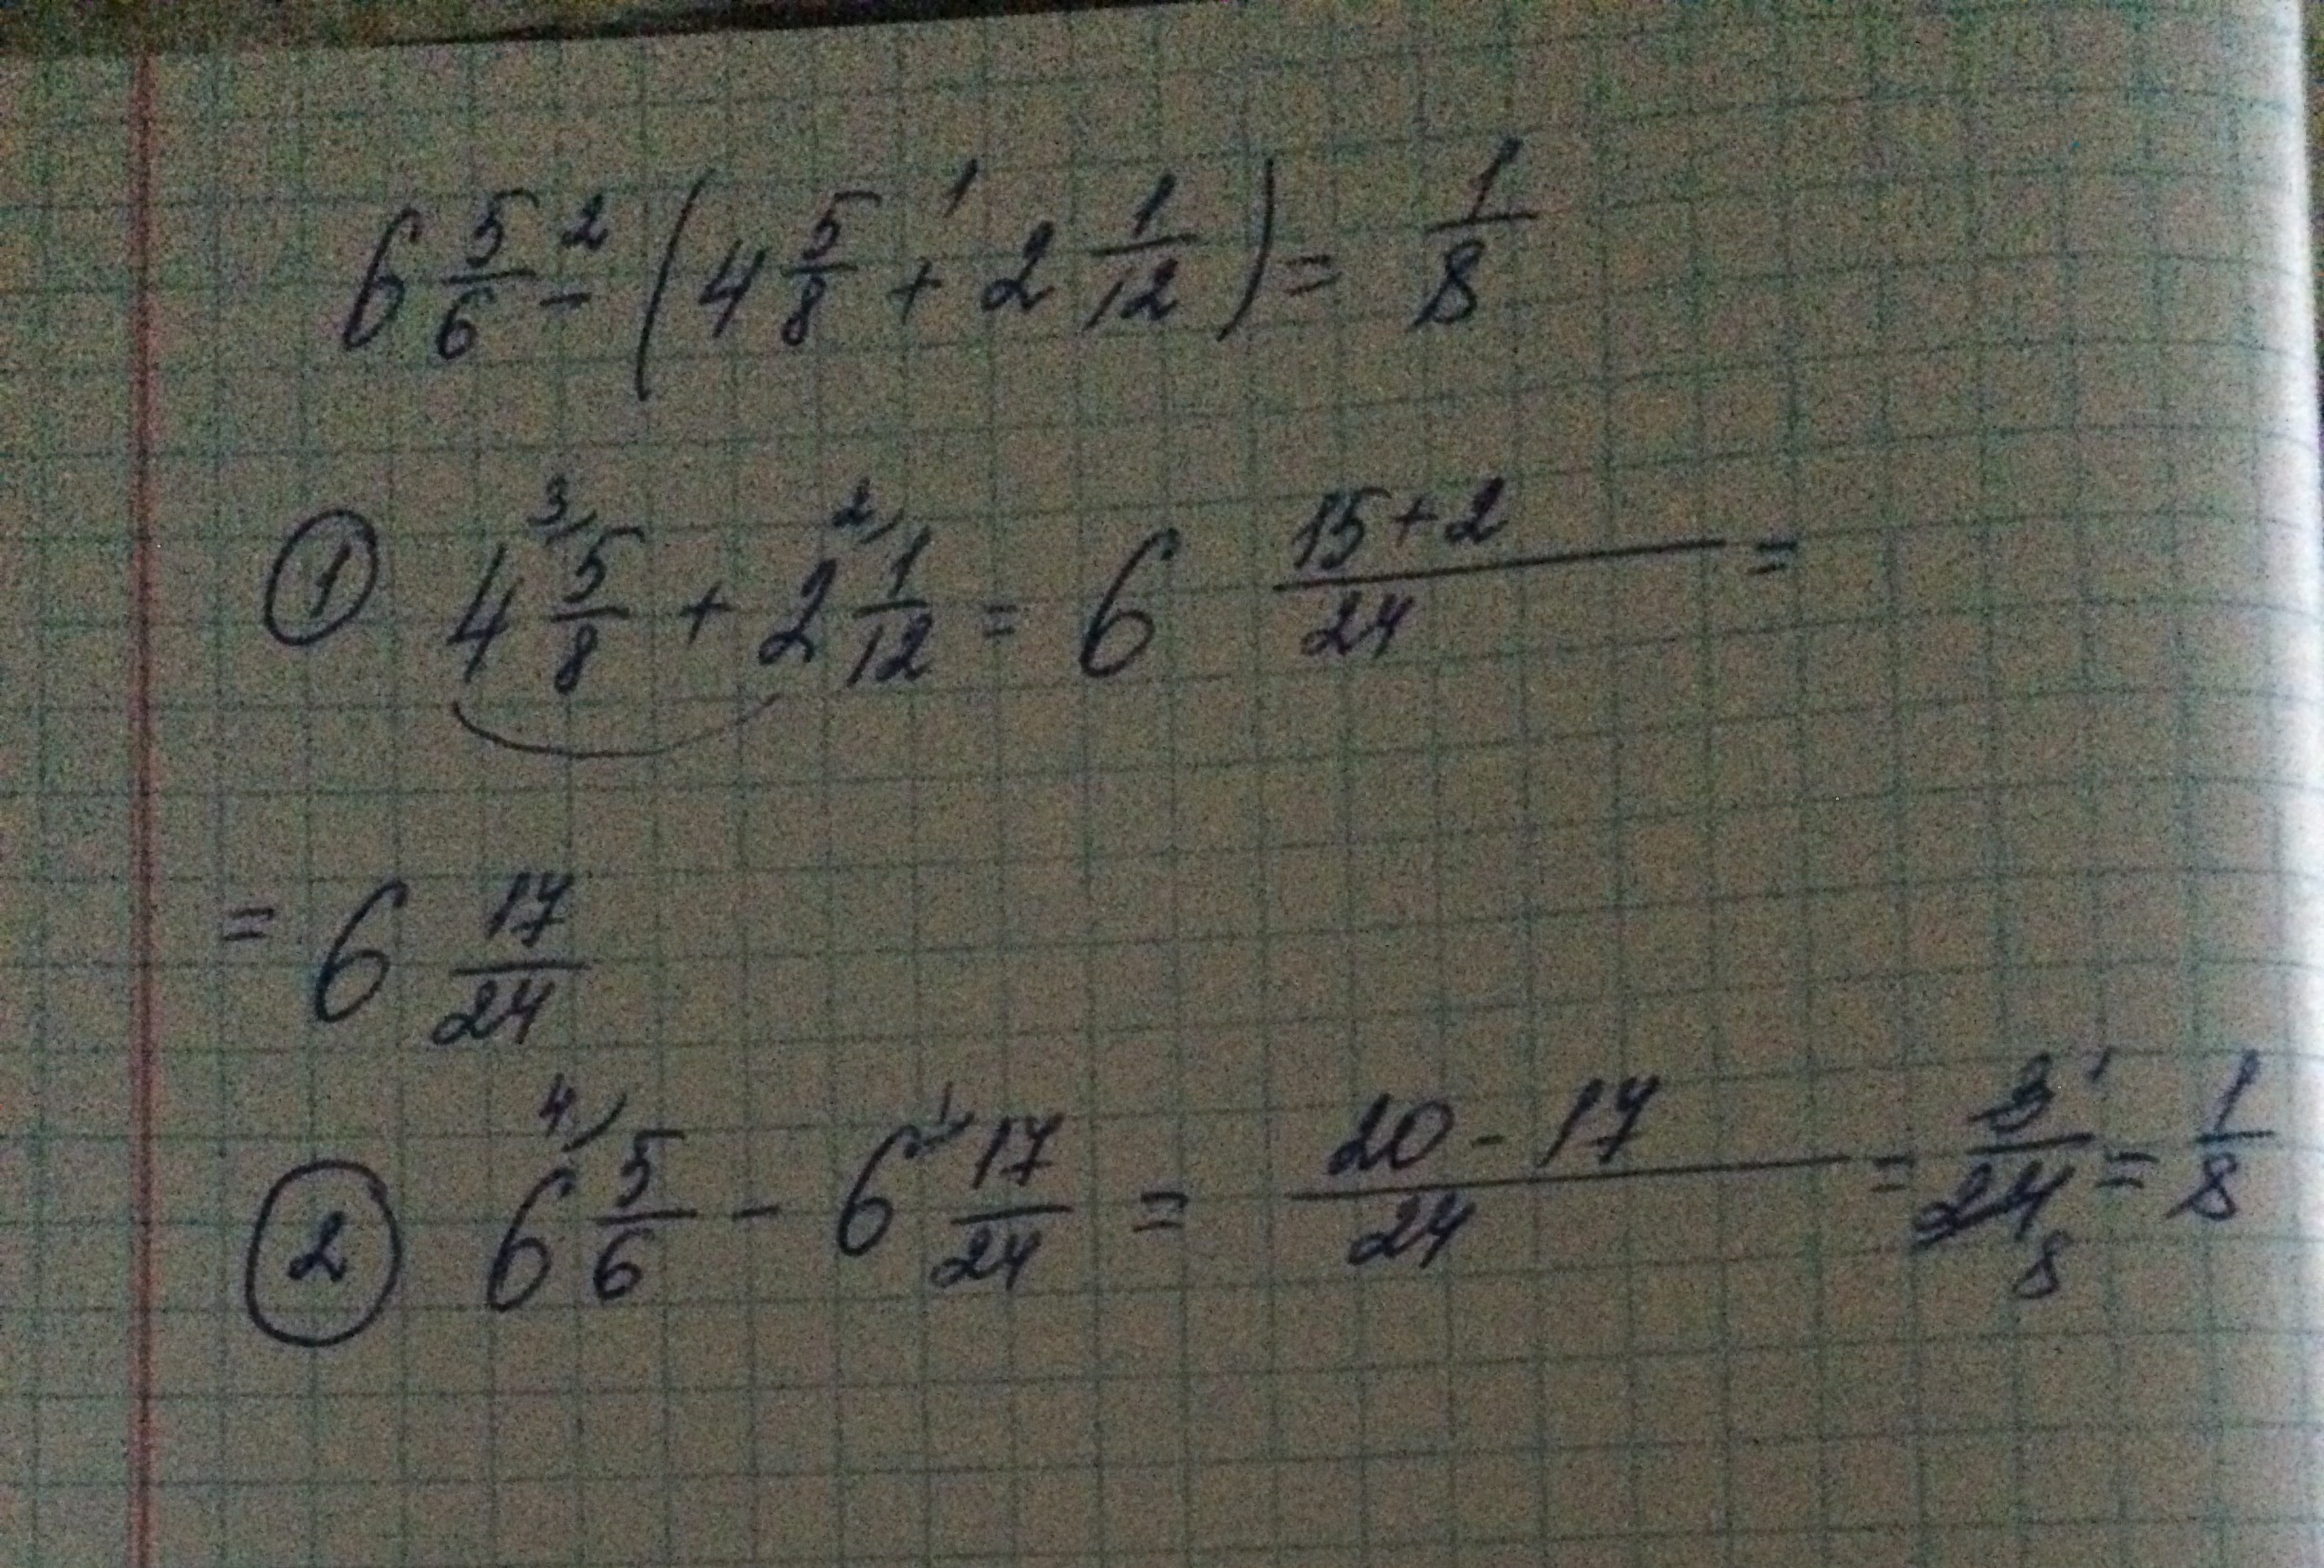 6 5/6 -² (4 5/8 +¹ 2 1/12) = 1/8
① 4 ³⁾5/8 + 2 ²⁾1/12 = 6 (15+2)/24 =
= 6 17/24
② 6 ⁴⁾5/6 - 6 ¹⁾17/24 = (20-17)/24 = 3¹/24₈ = 1/8